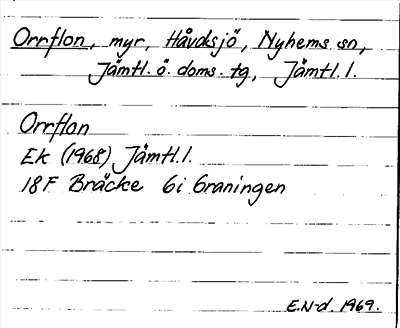 Orrflon, myr, Håvdsjö, Nyhems sn,
Jämtl. ö. doms. tg, Jämtl. l.
Orrflon
Ek (1968) Jämtl. l.
18F Bräcke 6i Graningen
E.N-d. 1969.